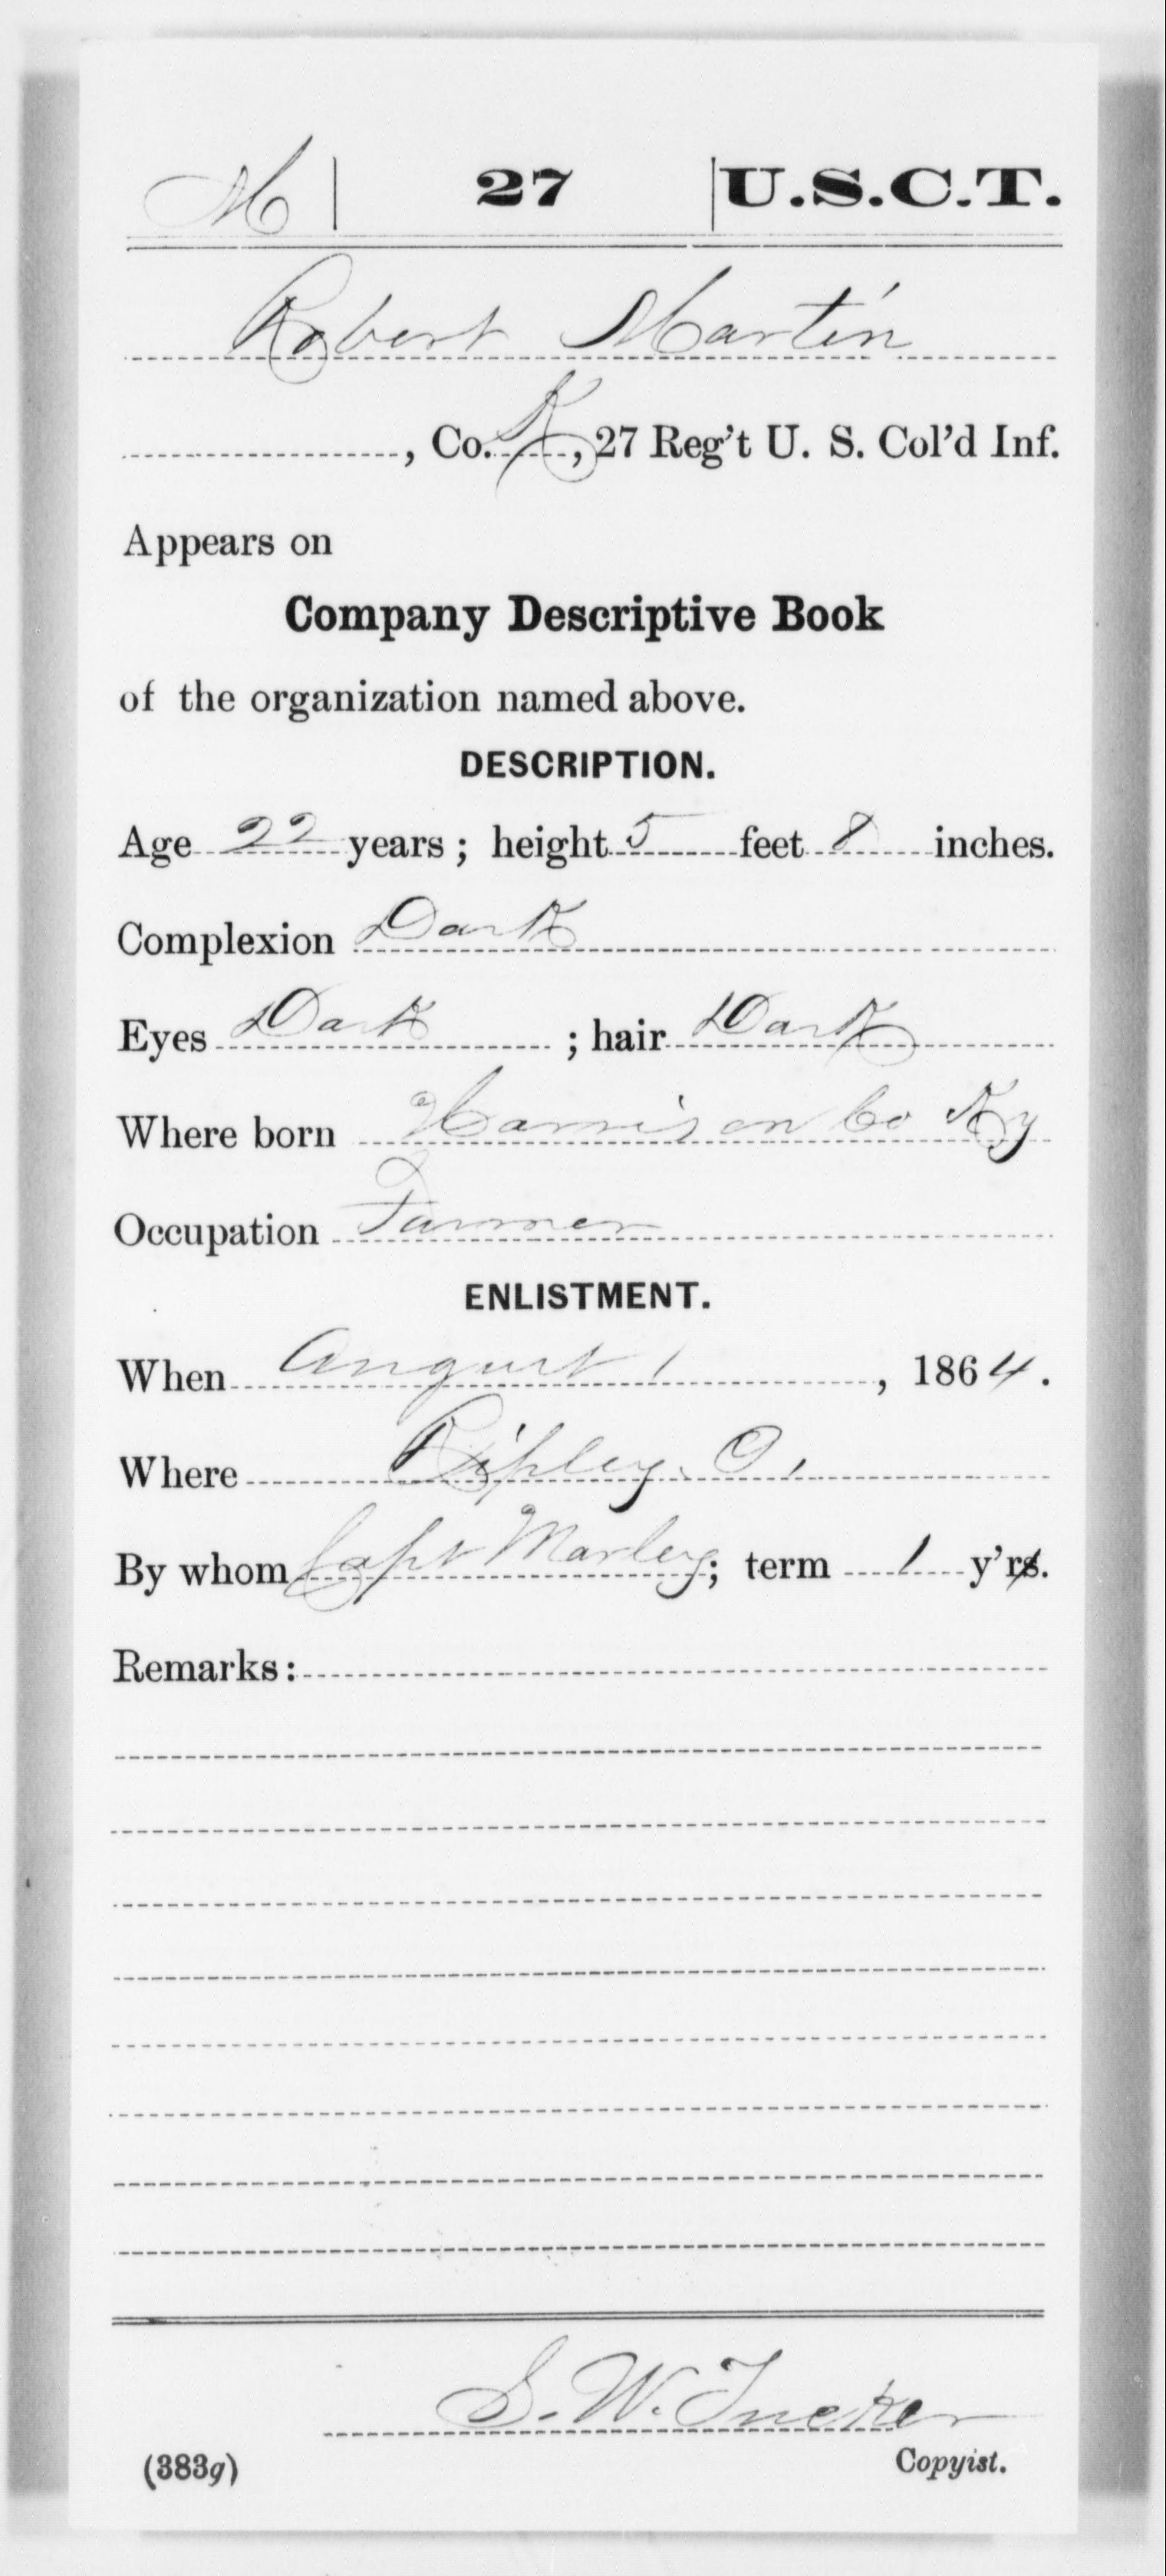 M | 27 | U.S.C.T.
Robert Martin
, Co. K, 27 Reg't U. S. Col'd Inf.
Appears on
Company Descriptive Book
of the organization named above.
DESCRIPTION.
Age 22 years; height 5 feet 8 inches.
Complexion Dark
Eyes Dark ; hair Dark
Where born Harrison Co Ky
Occupation Farmer
ENLISTMENT.
When August 1 , 1864.
Where Ripley. O.
By whom Capt Marley; term 1 y'rs.
Remarks:
S. W. Tucker
(383g) Copyist.